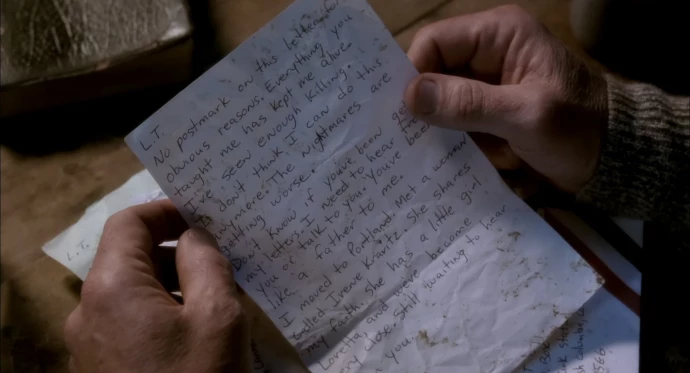 L.T.
No postmark on this letter for
obvious reasons. Everything you
taught me has kept me alive.
I've seen enough killing.
I don't think I can do this
anymore. The nightmares are
getting worse.
Don't know if you've been
my letters. I need to hear
you or talk to you. You've been
like a father to me.
I moved to Portland. Met a woman
called Irene Krantz. She shares
my faith. She has a little girl
Loretta, and we've become
very close. Still waiting to hear
you.
L.T.